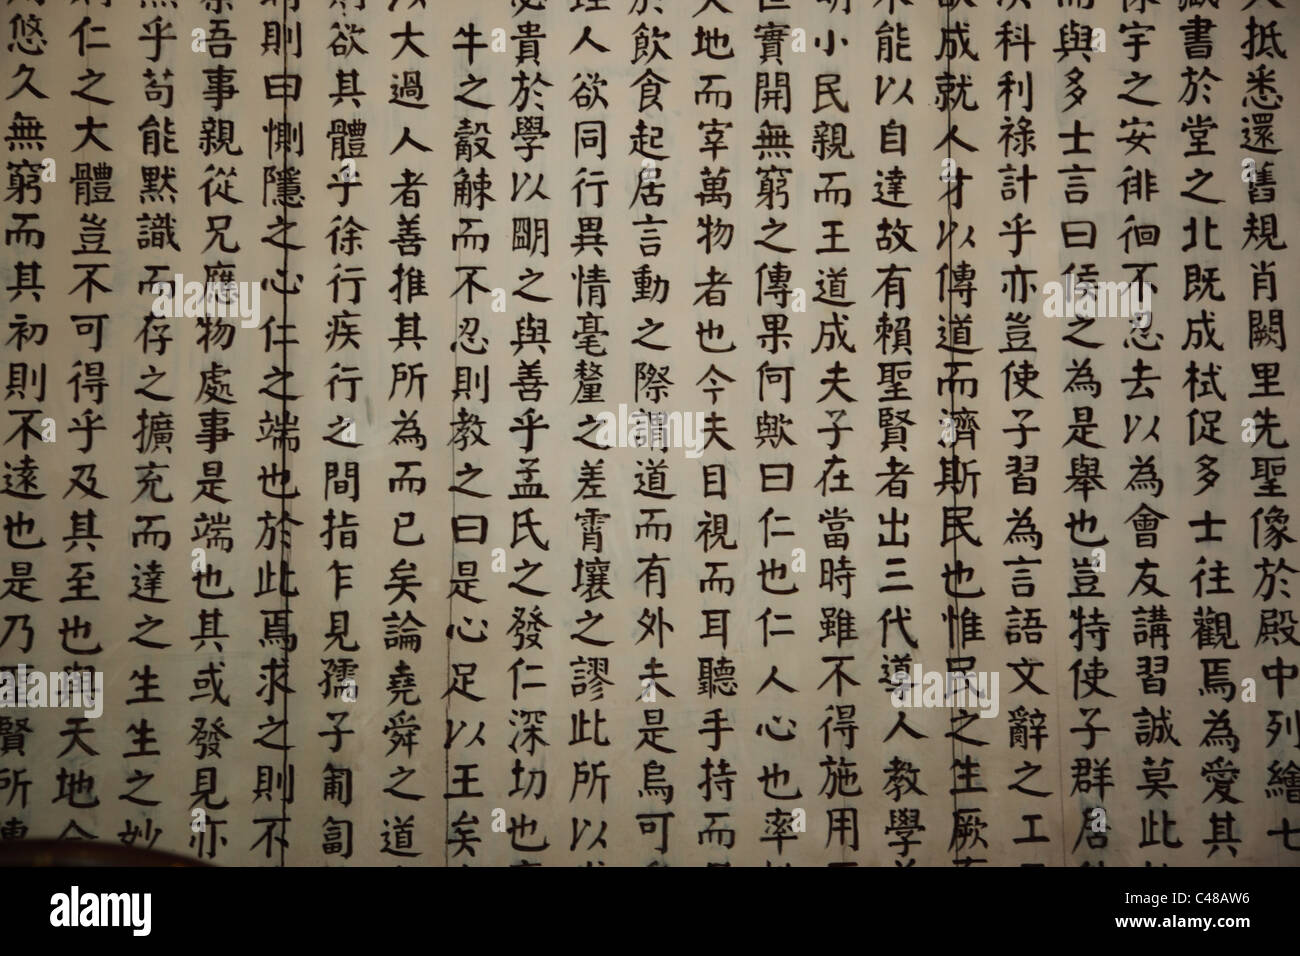 抵悉還舊規肖闕里先聖像於殿中列繪七
藏書於堂之北既成栻促多士往觀焉為愛其
宇之安徘徊不忍去以為會友講習誠莫此
而與多士言曰侯之為是舉也豈特使子群居
科利祿計乎亦豈使子習為言語文辭之工
欲成就人才以傳道而濟斯民也惟民之生厥
不能以自達故有賴聖賢者出三代導人教學
明小民親而王道成夫子在當時雖不得施用
世實開無窮之傳果何歟曰仁也仁人心也率
天地而宰萬物者也今夫目視而耳聽手持而
於飲食起居言動之際謂道而有外夫是烏可
理人欲同行異情毫釐之差霄壤之謬此所以
必貴於學以朙之與善乎孟氏之發仁深切也
牛之觳觫而不忍則教之曰是心足以王矣
大過人者善推其所為而已矣論堯舜之道
則欲其體乎徐行疾行之間指乍見孺子匍匐
則曰惻隱之心仁之端也於此焉求之則不
吾事親從兄應物處事是端也其或發見亦
乎苟能默識而存之擴充而達之生生之妙
則仁之大體豈不可得乎及其至也與天地合
悠久無窮而其初則不遠也是乃聖賢所傳
alamy
Image ID: C48AW6
www.alamy.com